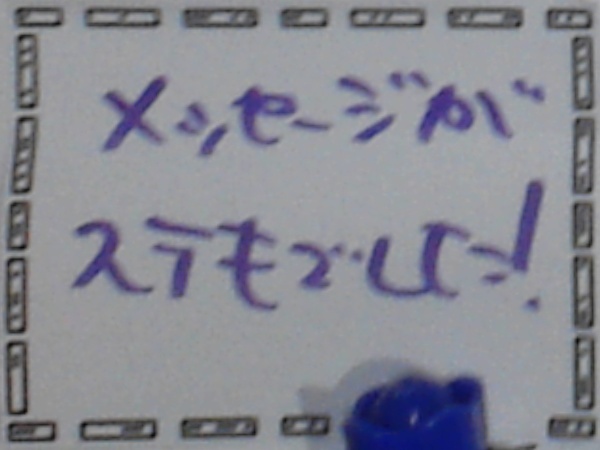 メッセージが
ステキでした!